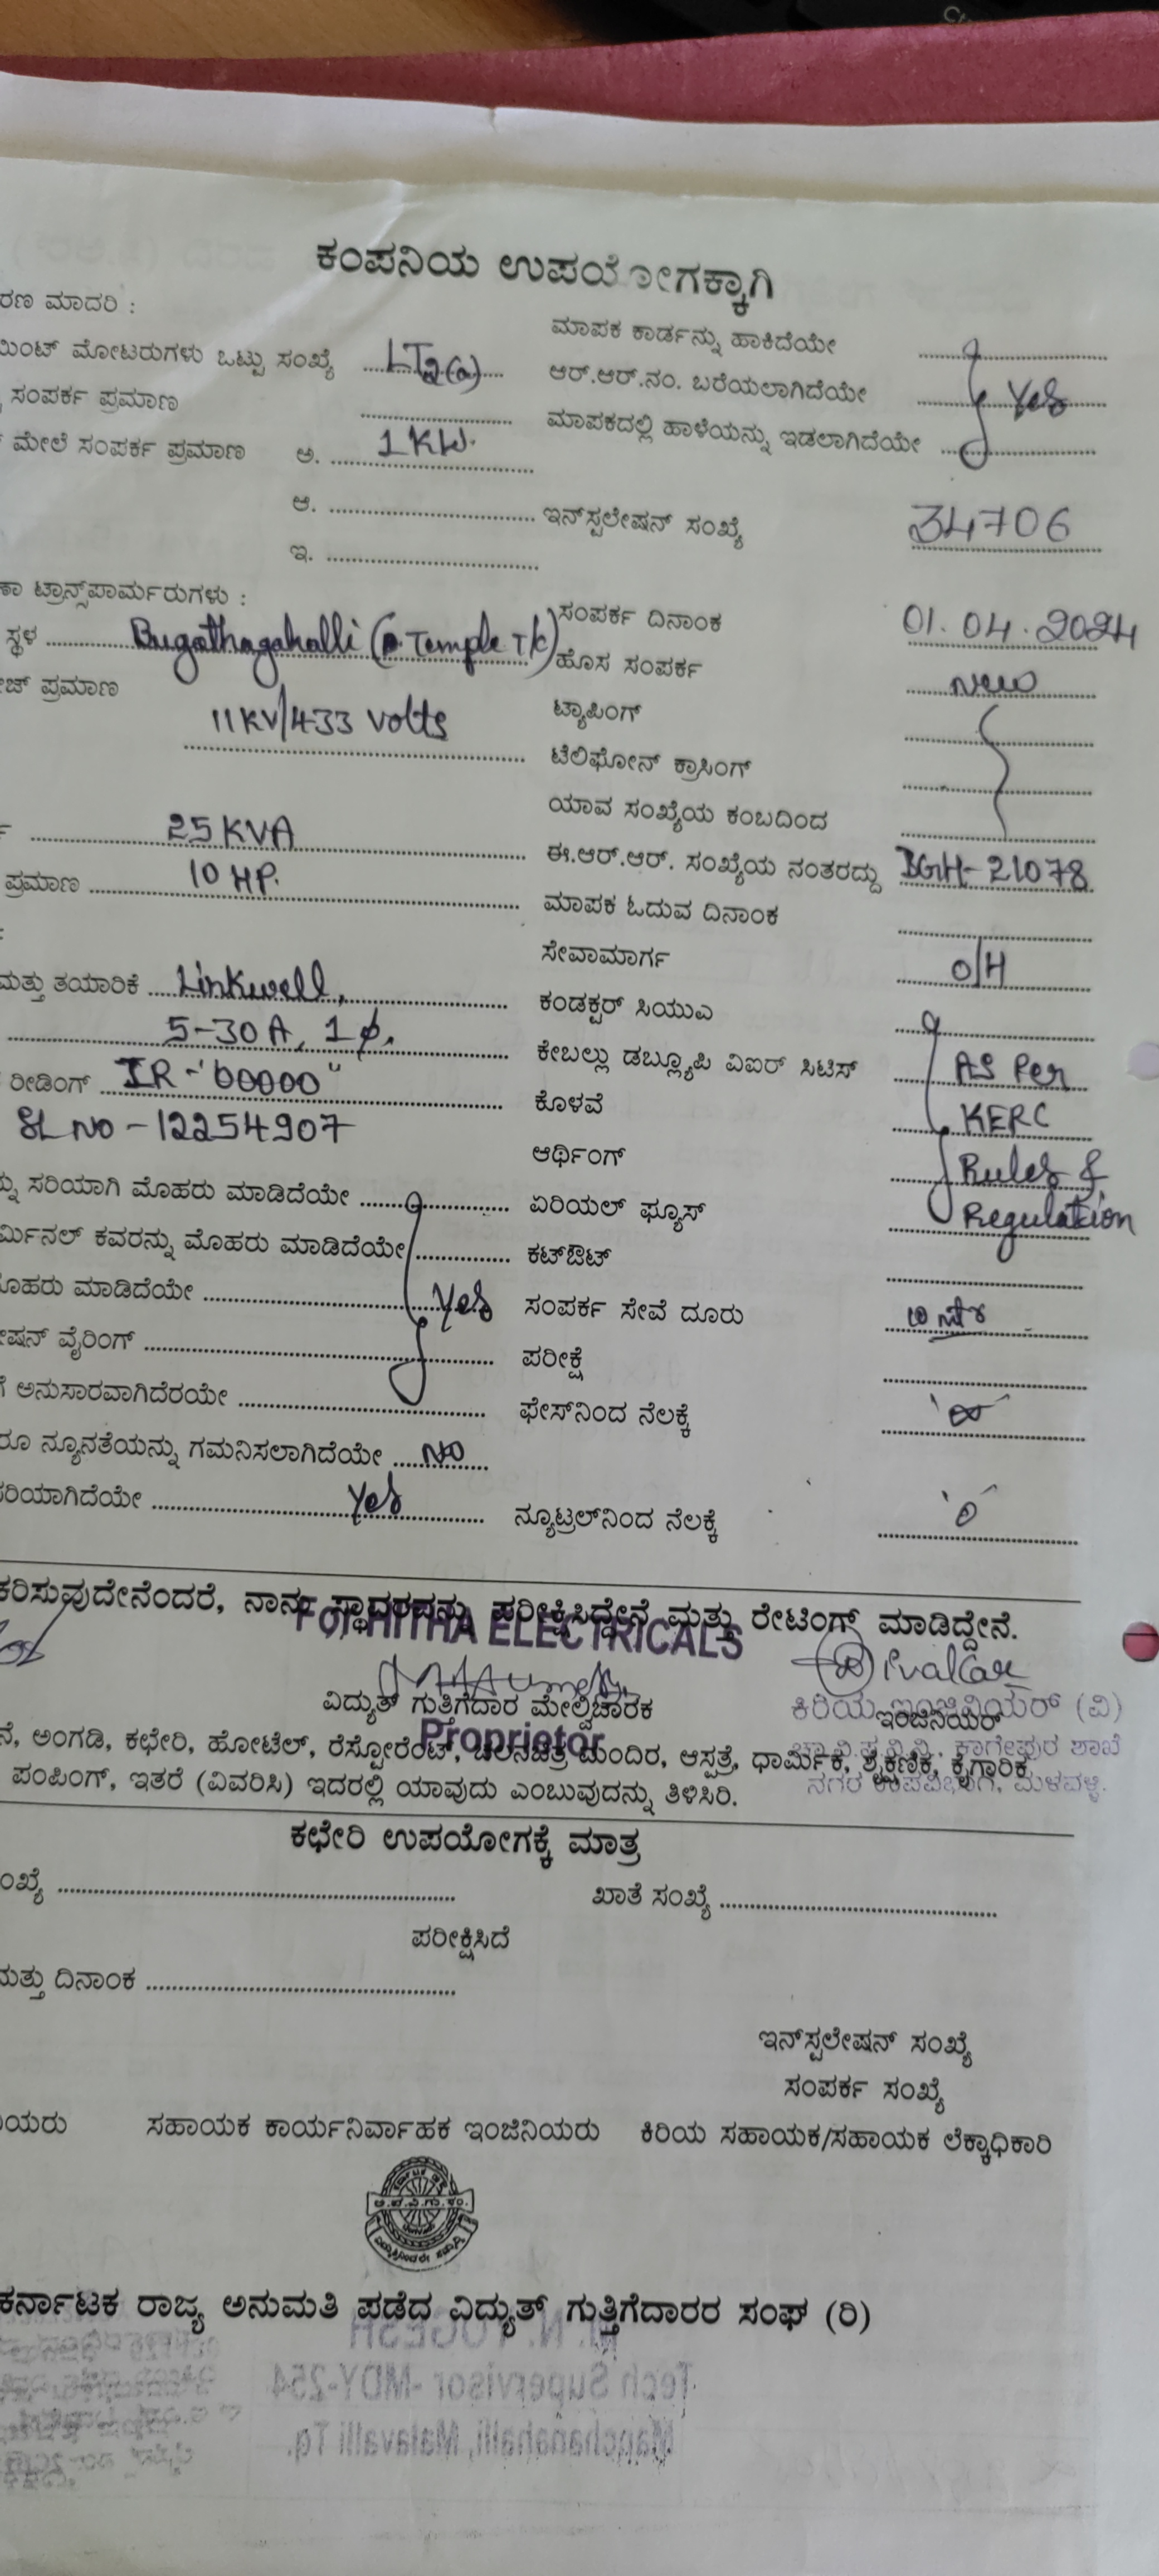 ಕಂಪನಿಯ ಉಪಯೋಗಕ್ಕಾಗಿ
ರಣ ಮಾದರಿ :
ಯಿಂಟ್ ಮೋಟರುಗಳು ಒಟ್ಟು ಸಂಖ್ಯೆ LT2(a) ಮಾಪಕ ಕಾರ್ಡನ್ನು ಹಾಕಿದೆಯೇ
ಸಂಪರ್ಕ ಪ್ರಮಾಣ ಆರ್.ಆರ್.ನಂ. ಬರೆಯಲಾಗಿದೆಯೇ Yes
ಮೇಲೆ ಸಂಪರ್ಕ ಪ್ರಮಾಣ ಅ. 1KW. ಮಾಪಕದಲ್ಲಿ ಹಾಳೆಯನ್ನು ಇಡಲಾಗಿದೆಯೇ
ಆ. ಇನ್‌ಸ್ಪಲೇಷನ್ ಸಂಖ್ಯೆ 34706
ಇ.
ಣಾ ಟ್ರಾನ್ಸ್‌ಪಾರ್ಮರುಗಳು :
ಸ್ಥಳ Bugathagahalli ( Temple TK) ಸಂಪರ್ಕ ದಿನಾಂಕ 01.04.2024
ಹೊಸ ಸಂಪರ್ಕ New
ೇಜ್ ಪ್ರಮಾಣ 11KV/433 Volts ಟ್ಯಾಪಿಂಗ್
ಟೆಲಿಫೋನ್ ಕ್ರಾಸಿಂಗ್
ಯಾವ ಸಂಖ್ಯೆಯ ಕಂಬದಿಂದ
25 KVA ಈ.ಆರ್.ಆರ್. ಸಂಖ್ಯೆಯ ನಂತರದ್ದು BGH-21078
ಪ್ರಮಾಣ 10 HP. ಮಾಪಕ ಓದುವ ದಿನಾಂಕ
ಸೇವಾಮಾರ್ಗ O/H
ಮತ್ತು ತಯಾರಿಕೆ Linkwell, ಕಂಡಕ್ಟರ್ ಸಿಯುಎ
5-30A, 1ϕ. ಕೇಬಲ್ಲು ಡಬ್ಲ್ಯೂಪಿ ವಿಐರ್ ಸಿಟಿಸ್ AS Per
ರೀಡಿಂಗ್ IR-'00000" ಕೊಳವೆ KERC
SL NO - 12254907 ಆರ್ಥಿಂಗ್ Rules &
ನ್ನು ಸರಿಯಾಗಿ ಮೊಹರು ಮಾಡಿದೆಯೇ ಏರಿಯಲ್ ಫ್ಯೂಸ್ Regulation
ರ್ಮಿನಲ್ ಕವರನ್ನು ಮೊಹರು ಮಾಡಿದೆಯೇ ಕಟ್‌ಔಟ್
ೊಹರು ಮಾಡಿದೆಯೇ Yes ಸಂಪರ್ಕ ಸೇವೆ ದೂರು 10 mtr
ೇಷನ್ ವೈರಿಂಗ್ ಪರೀಕ್ಷೆ
ಅನುಸಾರವಾಗಿದೆರಯೇ ಫೇಸ್‌ನಿಂದ ನೆಲಕ್ಕೆ '∞'
ರೂ ನ್ಯೂನತೆಯನ್ನು ಗಮನಿಸಲಾಗಿದೆಯೇ NO
ಸರಿಯಾಗಿದೆಯೇ Yes ನ್ಯೂಟ್ರಲ್‌ನಿಂದ ನೆಲಕ್ಕೆ '0'
ಕರಿಸುವುದೇನೆಂದರೆ, ನಾನು ಸ್ಥಾವರವನ್ನು ಪರೀಕ್ಷಿಸಿದ್ದೇನೆ ಮತ್ತು ರೇಟಿಂಗ್ ಮಾಡಿದ್ದೇನೆ.
For HITHA ELECTRICALS
ವಿದ್ಯುತ್ ಗುತ್ತಿಗೆದಾರ ಮೇಲ್ವಿಚಾರಕ ಇಂಜಿನಿಯರ್
ಕಿರಿಯ ಇಂಜಿನಿಯರ್ (ವಿ)
Proprietor
ನೆ, ಅಂಗಡಿ, ಕಛೇರಿ, ಹೋಟೆಲ್, ರೆಸ್ಟೋರೆಂಟ್, ಚಲನಚಿತ್ರ ಮಂದಿರ, ಆಸ್ಪತ್ರೆ, ಧಾರ್ಮಿಕ, ಶೈಕ್ಷಣಿಕ, ಕೈಗಾರಿಕ
ಕಾಗೇಪುರ ಶಾಖೆ
ಪಂಪಿಂಗ್, ಇತರೆ (ವಿವರಿಸಿ) ಇದರಲ್ಲಿ ಯಾವುದು ಎಂಬುವುದನ್ನು ತಿಳಿಸಿರಿ.
ನಗರ ಉಪವಿಭಾಗ, ಮಳವಳ್ಳಿ.
ಕಛೇರಿ ಉಪಯೋಗಕ್ಕೆ ಮಾತ್ರ
ಂಖ್ಯೆ ಖಾತೆ ಸಂಖ್ಯೆ
ಪರೀಕ್ಷಿಸಿದೆ
ಮತ್ತು ದಿನಾಂಕ
ಇನ್‌ಸ್ಪಲೇಷನ್ ಸಂಖ್ಯೆ
ಸಂಪರ್ಕ ಸಂಖ್ಯೆ
ಿಯರು ಸಹಾಯಕ ಕಾರ್ಯನಿರ್ವಾಹಕ ಇಂಜಿನಿಯರು ಕಿರಿಯ ಸಹಾಯಕ/ಸಹಾಯಕ ಲೆಕ್ಕಾಧಿಕಾರಿ
ಕರ್ನಾಟಕ ರಾಜ್ಯ ಅನುಮತಿ ಪಡೆದ ವಿದ್ಯುತ್ ಗುತ್ತಿಗೆದಾರರ ಸಂಘ (ರಿ)
Tech Supervisor -MDY-254
Manchanahalli, Malavalli Tq.